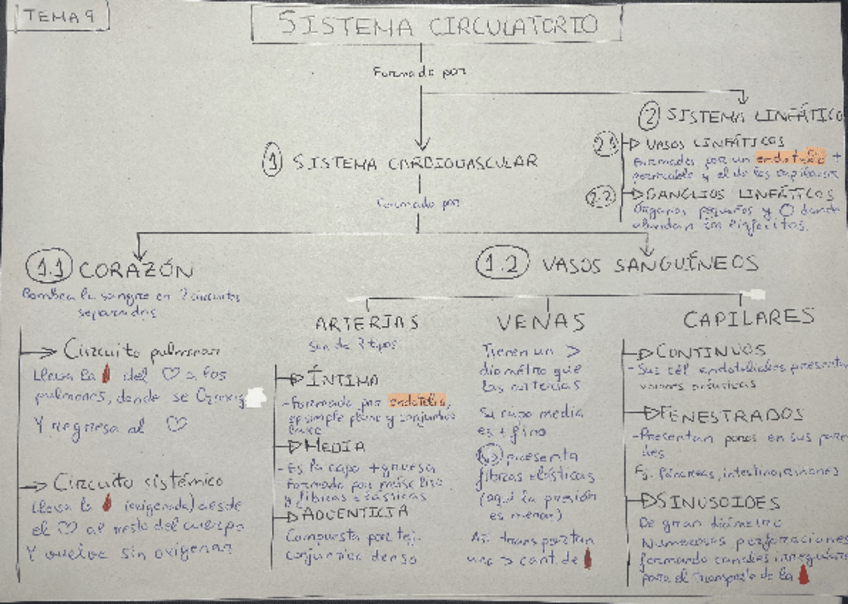 TEMA 9
SISTEMA CIRCULATORIO
Formado por
2 SISTEMA LINFÁTICO
2.1 VASOS LINFÁTICOS
Formados por un endotelio +
permeable y el de los capilares
2.2 GANGLIOS LINFÁTICOS
Órganos pequeños y donde
abundan los linfocitos.
1 SISTEMA CARDIOVASCULAR
Formado por
1.1 CORAZÓN
Bombea la sangre en 2 circuitos
separados
Circuito pulmonar
Lleva la del a los
pulmones, donde se
Y regresa al
Circuito sistémico
Lleva la (oxigenada) desde
el al resto del cuerpo
Y vuelve sin oxigenar
1.2 VASOS SANGUÍNEOS
ARTERIAS
Son de 3 tipos
ÍNTIMA
-Formada por endotelio,
ep simple plano y conjuntivo
laxo
MEDIA
-Es la capa +gruesa
Formada por músc liso
y fibras elásticas
ADVENTICIA
Compuesta por tej.
conjuntivo denso
VENAS
Tienen un >
diámetro que
las arterias
Su capa media
es + fina
No presenta
fibras elásticas
(aquí la presión
es menor)
Así transportan
una > cant. de
CAPILARES
CONTINUOS
-Sus cél endoteliales presentan
uniones
FENESTRADOS
-Presentan poros en sus pare-
des
Ej. Páncreas, intestino, riñones
SINUSOIDES
De gran diámetro
Numerosas perforaciones
formando canales irregulares
para el transporte de la